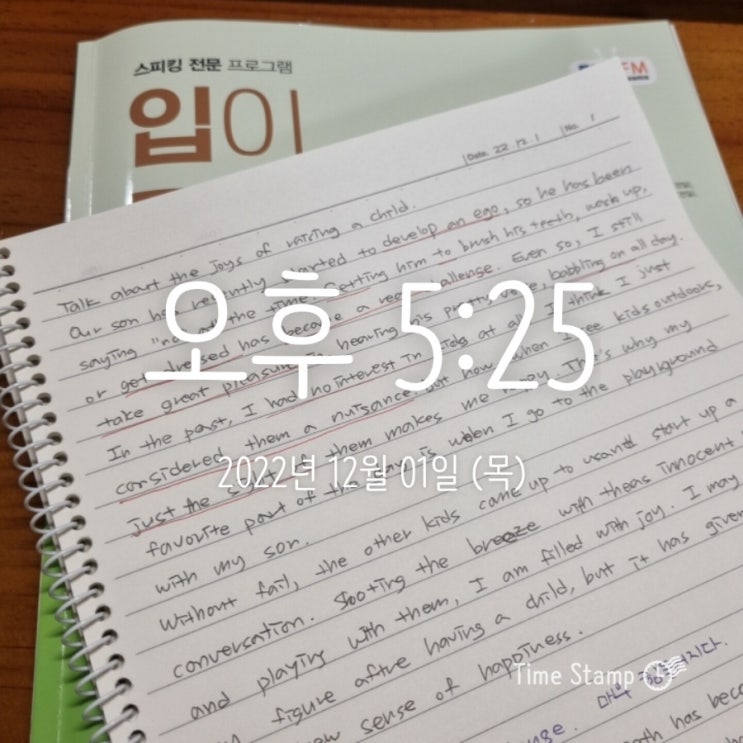 스피킹 전문 프로그램
입이
FM
Date 22. 12. 1 No. 1
Talk about the joys of raising a child.
Our son has recently started to develop an ego, so he has been
saying "no" all the time. Getting him to brush his teeth, wash up,
or get dressed has become a real challenge. Even so, I still
take great pleasure in hearing his pretty voice, babbling on all day.
In the past, I had no interest in kids at all. I think I just
considered them a nuisance. But now, when I see kids outdoors,
just the sight of them makes me happy. That's why my
favorite part of the day is when I go to the playground
with my son.
Without fail, the other kids came up to us and start up a
conversation. Sooting the breeze with theas innocent
and playing with them, I am filled with joy. I may
figure aftre having a child, but it has given
new sense of happiness.
오후 5:25
2022년 12월 01일 (목)
Time Stamp